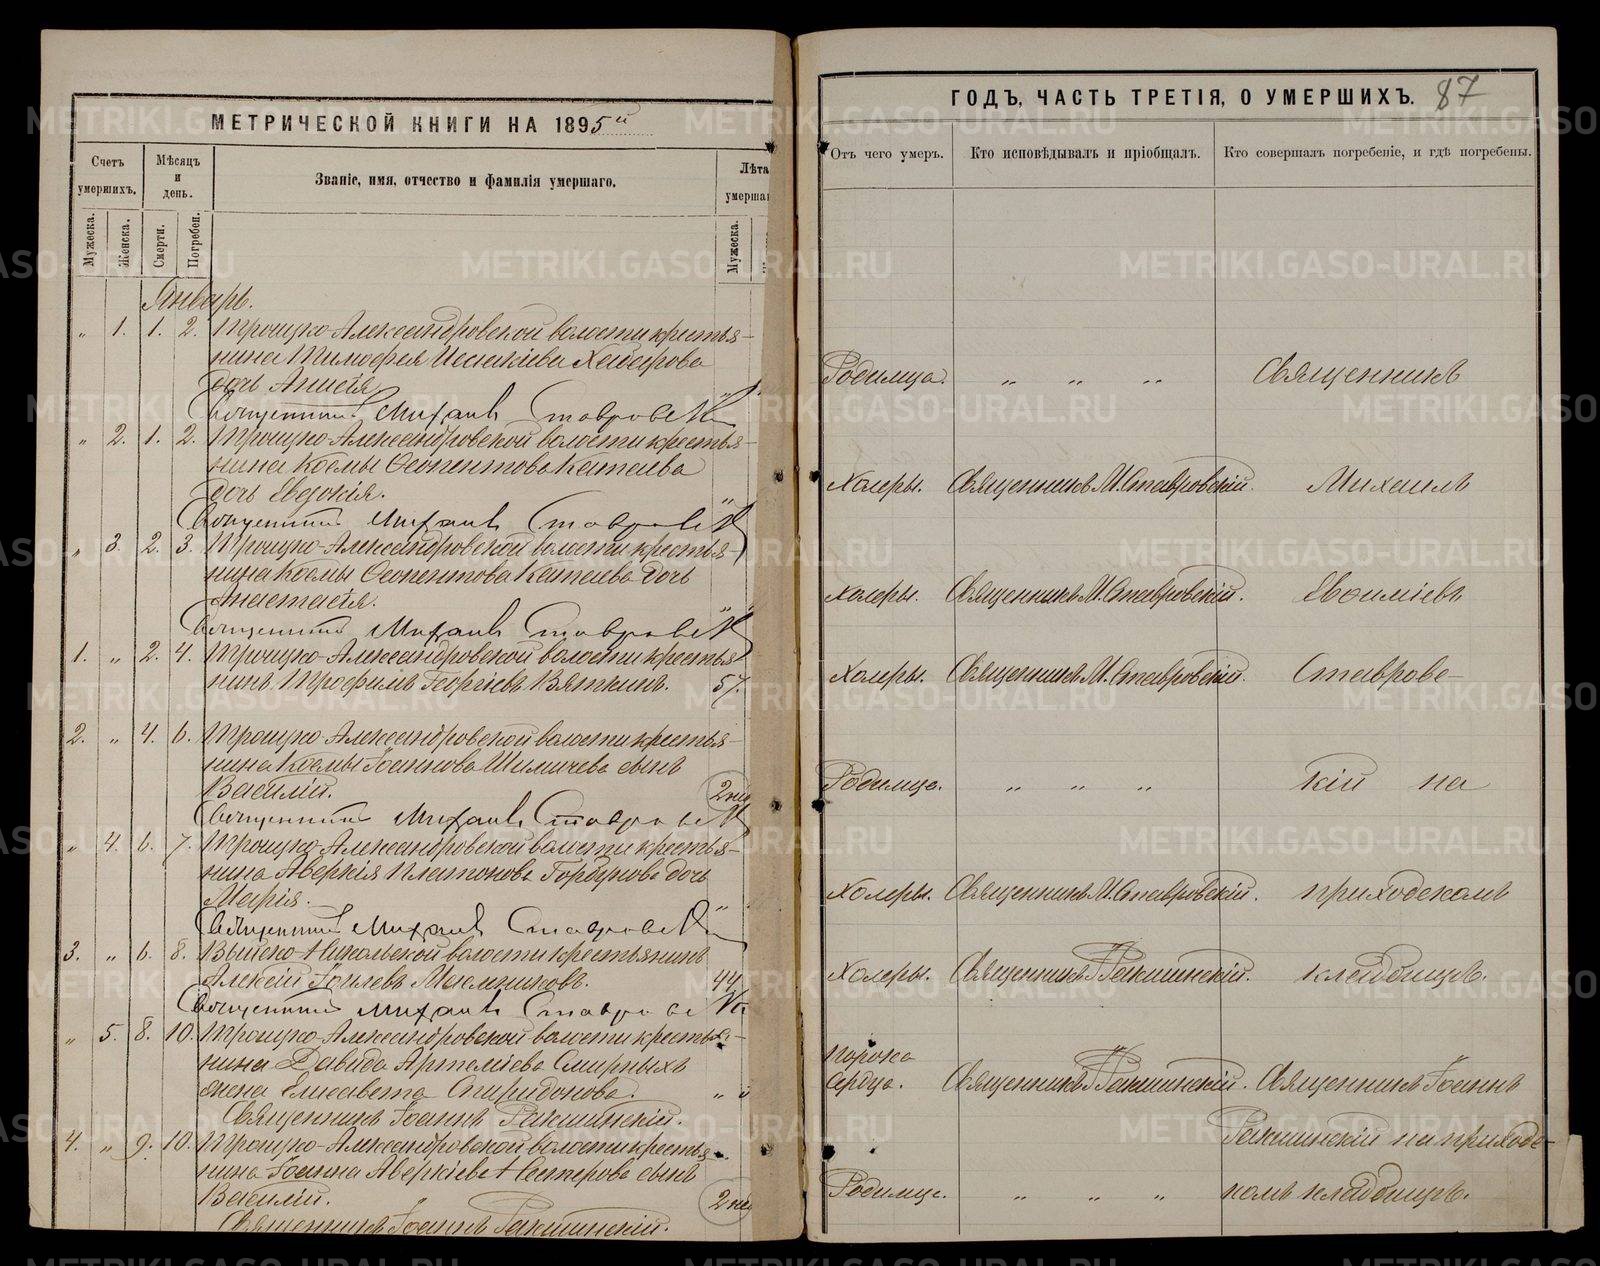 МЕТРИЧЕСКОЙ КНИГИ НА 1895й
Счетъ умершихъ.
Мѣсяцъ и день.
Званіе, имя, отчество и фамилія умершаго.
Лѣта
умерша
Мужеска.
Женска.
Смерти.
Погребен.
Мужеска.
Январь.
" 1. 1. 2. Троицко-Александровской волости крестья-
нина Тимофея Исаакіева Хабарова
дочь Анисія
Священникъ Михаилъ Ставровскій
" 2. 1. 2. Троицко-Александровской волости крестья-
нина Косьмы Ѳеопентова Катаева
дочь Евдокія.
Священникъ Михаилъ Ставровскій
" 3. 2. 3. Троицко-Александровской волости крестья-
нина Косьмы Ѳеопентова Катаева дочь
Анастасія.
Священникъ Михаилъ Ставровскій
1. " 2. 4. Троицко-Александровской волости крестья
нинъ Трофимъ Георгіевъ Вяткинъ. 57.
2. " 4. 6. Троицко-Александровской волости крестья-
нина Косьмы Іоаннова Шимичева сынъ
Василій. 2 нед
Священникъ Михаилъ Ставровскій
" 4. 6. 7. Троицко-Александровской волости крестья-
нина Аверкія Платонова Горбунова дочь
Марія.
Священникъ Михаилъ Ставровскій
3. " 6. 8. Выйско-Никольской волости крестьянинъ
Алексій Іоилевъ Мясниковъ. 44
Священникъ Михаилъ Ставровскій
" 5. 8. 10. Троицко-Александровской волости крестья-
нина Давида Артеміева Смирныхъ
жена Елисавета Спиридонова.
Священникъ Іоаннъ Ракшинскій.
4. " 9. 10. Троицко-Александровской волости крестья-
нина Іоанна Аверкіева Нестерова сынъ
Василій. 2 не
Священникъ Іоаннъ Ракшинскій.
ГОДЪ, ЧАСТЬ ТРЕТІЯ, О УМЕРШИХЪ. 87
Отъ чего умеръ.
Кто исповѣдывалъ и пріобщалъ.
Кто совершалъ погребеніе, и гдѣ погребены.
Родимца. " " " Священникъ
Холеры. Священникъ М. Ставровскій. Михаилъ
Холеры. Священникъ М. Ставровскій. Евѳиміевъ
Холеры. Священникъ М. Ставровскій. Ставров-
Родимца. " " " скій на
Холеры. Священникъ М. Ставровскій. приходскомъ
Холеры. Священникъ І. Ракшинскій. кладбищѣ.
порока
сердца. Священникъ І. Ракшинскій. Священникъ Іоаннъ
Ракшинскій на приход-
Родимца. " " " скомъ кладбищѣ.
METRIKI.GASO-URAL.RU